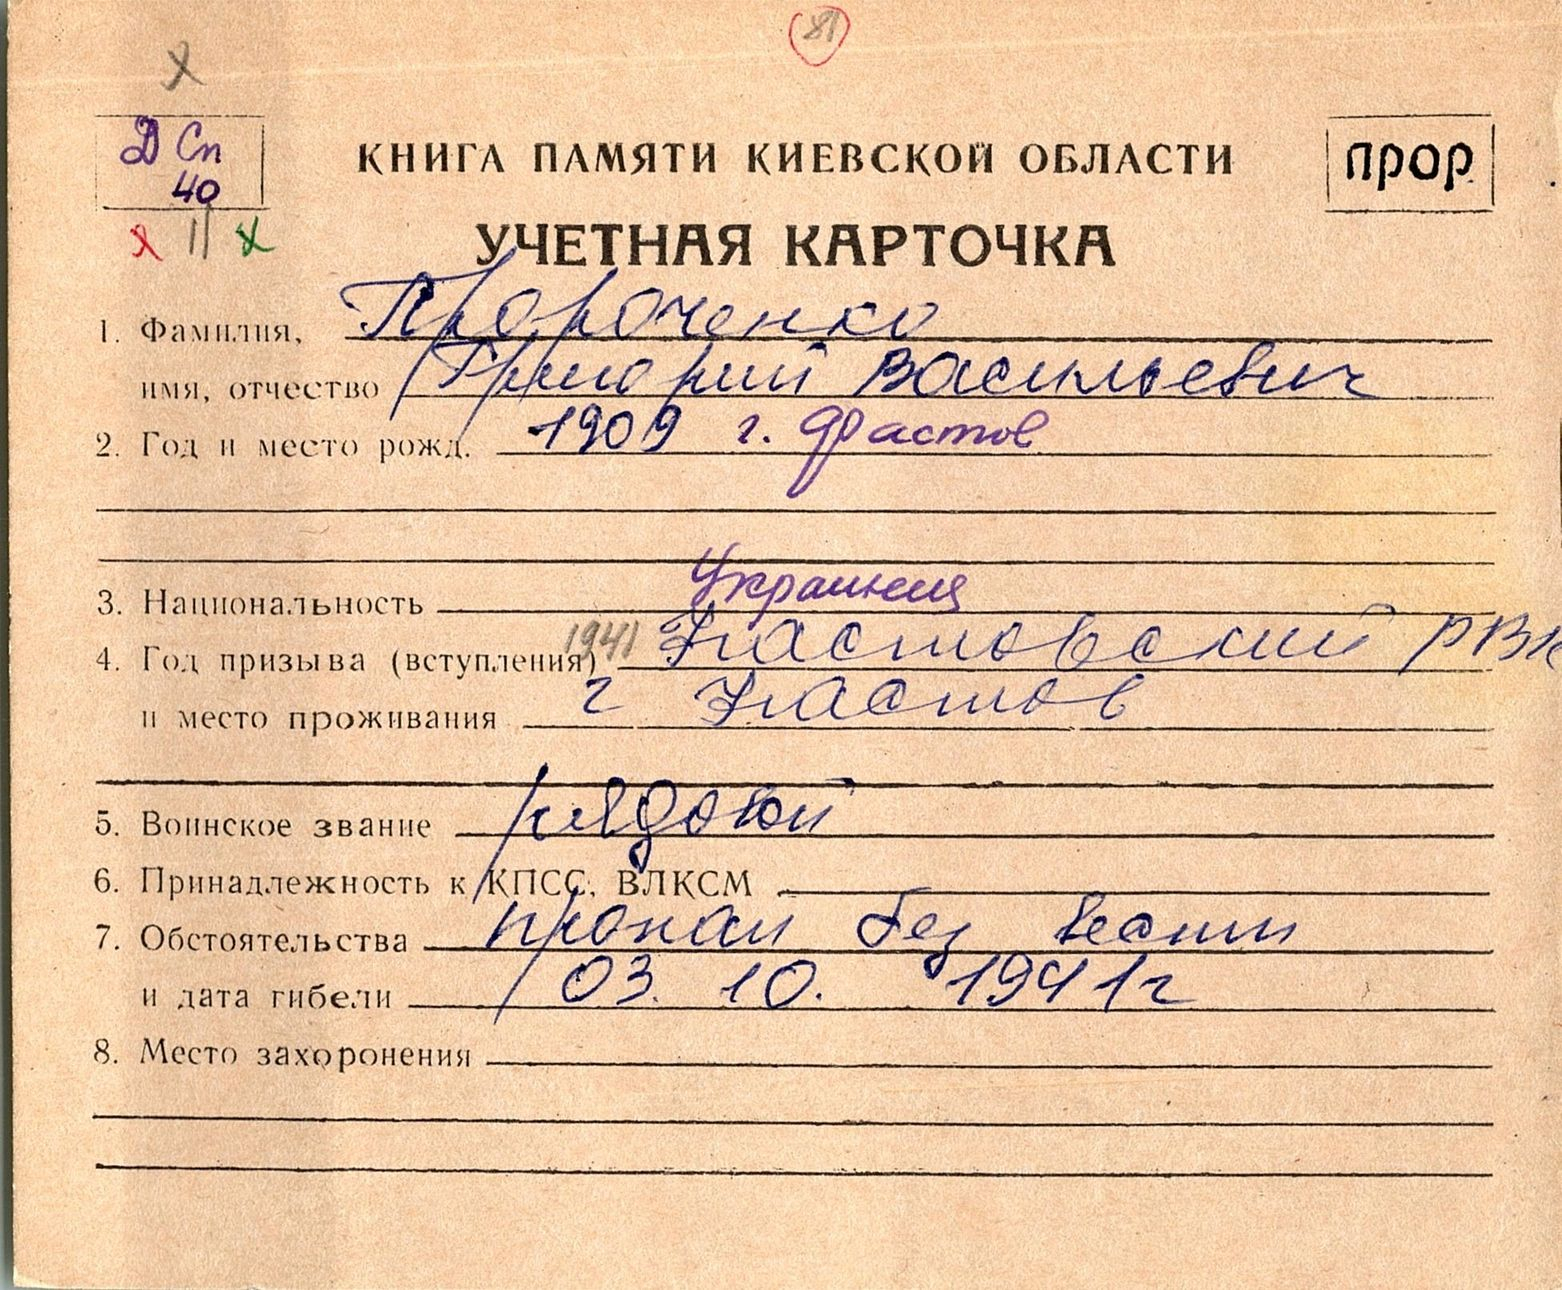 81
х
Д Сп
40
КНИГА ПАМЯТИ КИЕВСКОЙ ОБЛАСТИ
прор
х II х
УЧЕТНАЯ КАРТОЧКА
1. Фамилия, Пророченко
имя, отчество Григорий Васильевич
2. Год и место рожд. 1909 г. Фастов
3. Национальность Украинец
4. Год призыва (вступления) 1941 Фастовский РВК
и место проживания г Фастов
5. Воинское звание рядовой
6. Принадлежность к КПСС, ВЛКСМ
7. Обстоятельства пропал без вести
и дата гибели 03. 10. 1941г
8. Место захоронения